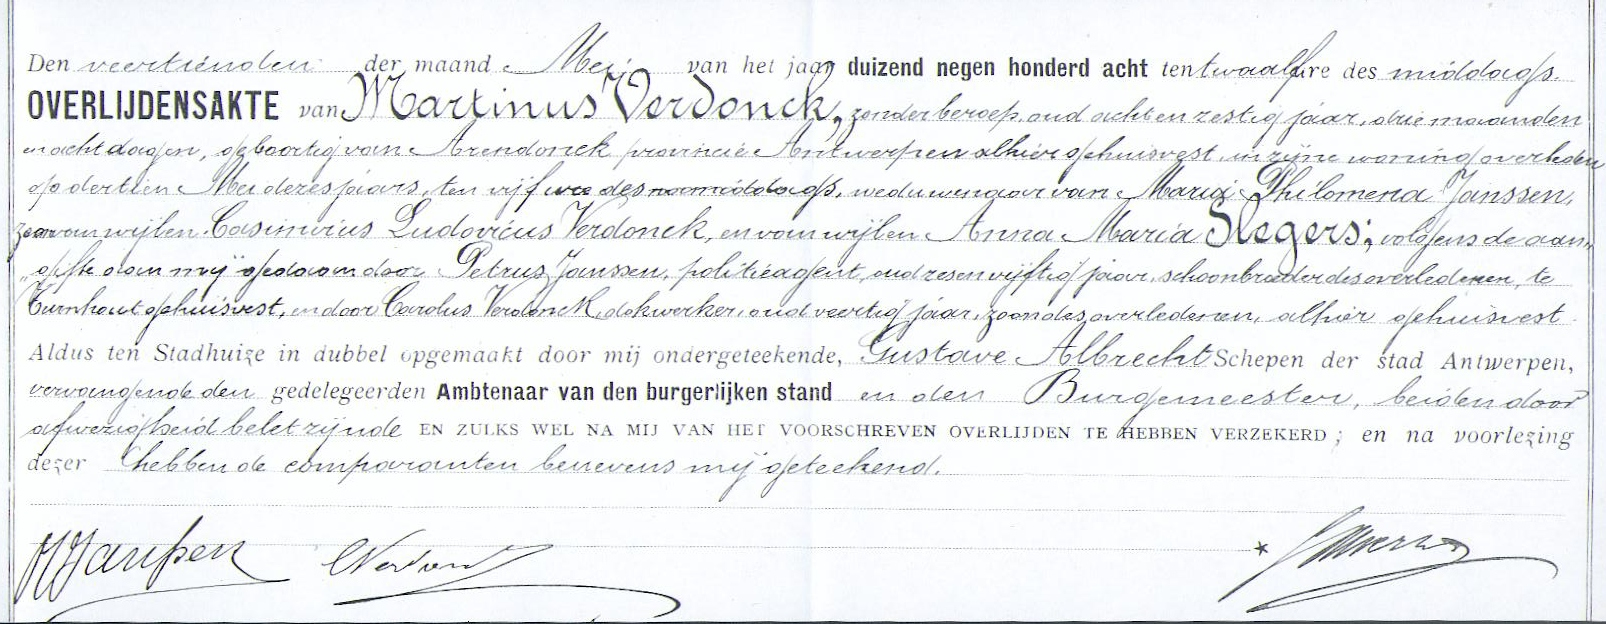 Den veertienden der maand Mei van het jaar duizend negen honderd acht ten twaalf ure des middags.
OVERLIJDENSAKTE van Martinus Verdonck, zonder beroep, oud acht en zestig jaar, drie maanden
en acht dagen, geboortig van Arendonck provincie Antwerpen alhier gehuisvest, in zijne woning overleden
op dertien Mei dezes jaars, ten vijf ure des namiddags, weduwenaar van Maria Philomena Janssen,
zoon van wijlen Casimirus Ludovicus Verdonck, en van wijlen Anna Maria Slegers; volgens de aan-
gifte aan mij gedaan door Petrus Janssen, politieagent, oud zes en vijftig jaar, schoonbroeder des overledenen, te
Turnhout gehuisvest, en door Carolus Verdonck, dokwerker, oud veertig jaar, zoon des overledenen, alhier gehuisvest.
Aldus ten Stadhuize in dubbel opgemaakt door mij ondergeteekende, Gustave Albrecht Schepen der stad Antwerpen,
vervangende den gedelegeerden Ambtenaar van den burgerlijken stand en den Burgemeester, beiden door
afwezigheid belet zijnde EN ZULKS WEL NA MIJ VAN HET VOORSCHREVEN OVERLIJDEN TE HEBBEN VERZEKERD; en na voorlezing
dezer hebben de comparanten benevens mij geteekend.
Janssen Verdonck